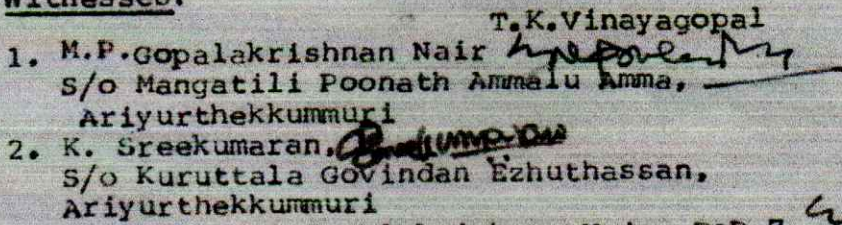 Witnesses:
T.K.Vinayagopal
1. M.P.Gopalakrishnan Nair
S/o Mangatili Poonath Ammalu Amma,
Ariyurthekkummuri
2. K. Sreekumaran,
S/o Kuruttala Govindan Ezhuthassan,
Ariyurthekkummuri